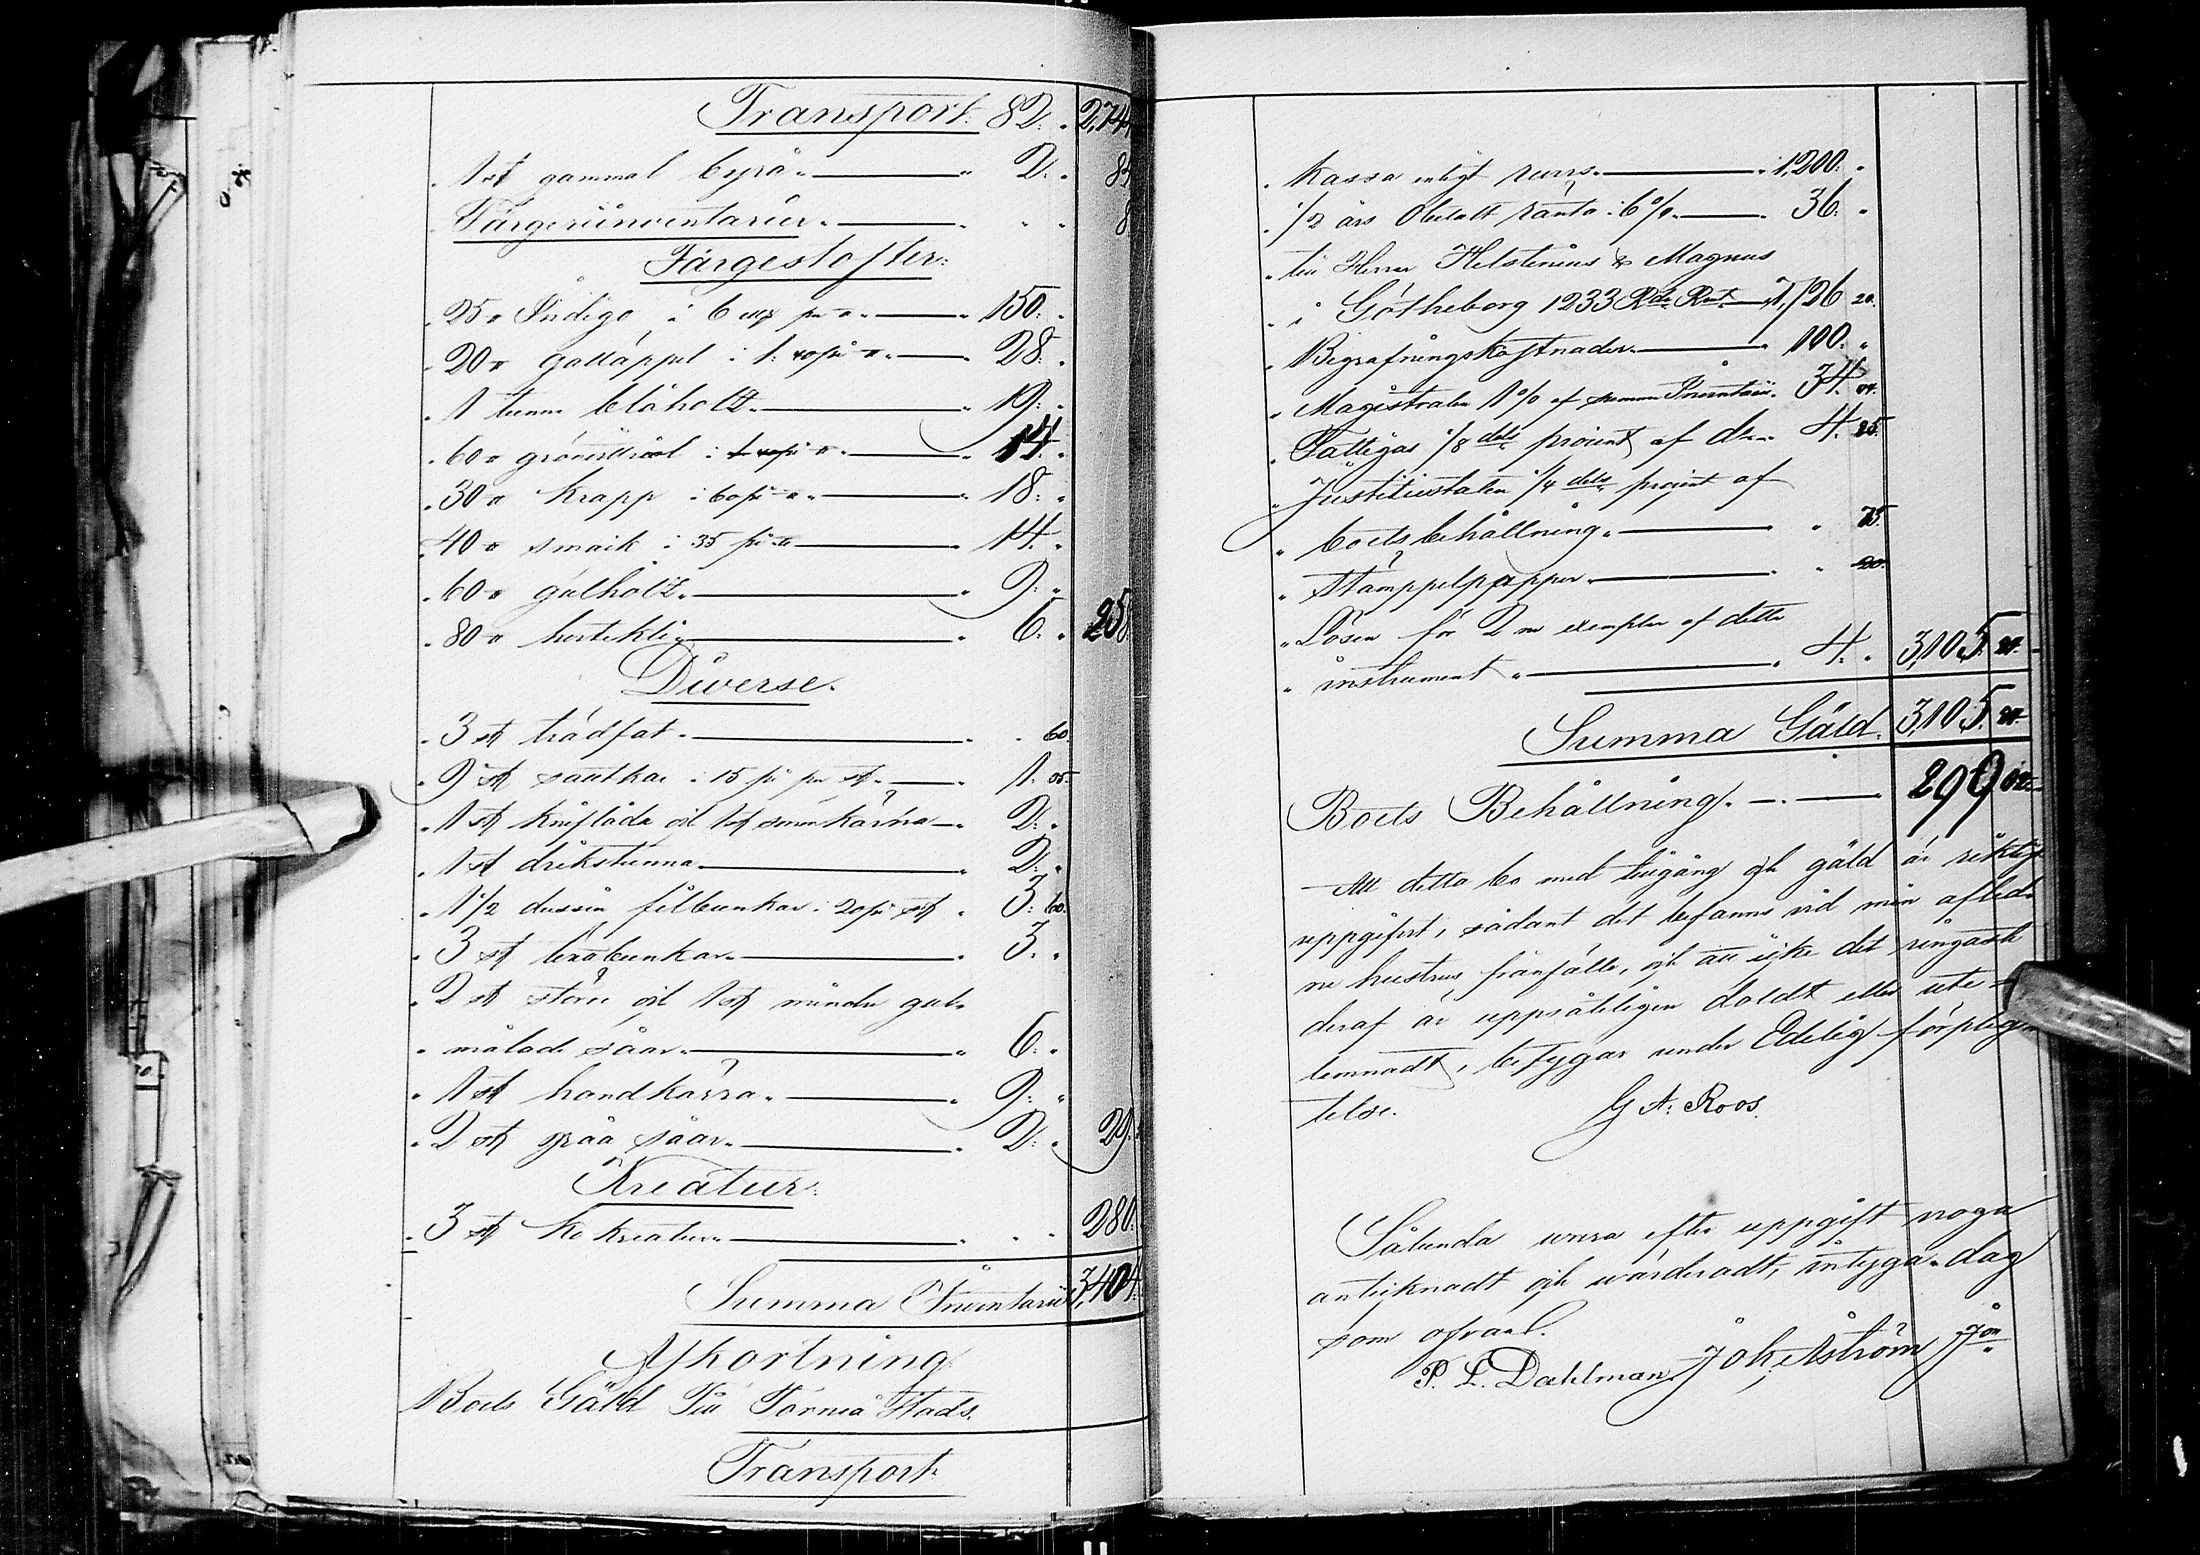 Transport. 82. . 2,74
1 st gammal byrå. 2. . 84
Färgeriinventarier. . . 8
Färgestofter.
25 ℔ Indigo i 6 m/g per ℔. 150. .
20 ℔ galläppel i 1: 40 pi ℔. 28. .
1 tunna blåholtz. 19. .
60 ℔ i ℔. 14. .
30 ℔ krapp i 60 pi ℔. 18. .
40 ℔ smack i 35 pi ℔ 14. .
60 ℔ gulholtz. 9. .
80 ℔ 6. . 258
Diverse.
3 st trädfat. . 60.
9 st såltkar i 15 pi per st. 1. 35.
1 st kniflåda och 1 st smörkärna. 2. .
1 st drikstunna. 2. .
1 1/2 dussin filbunkar i 20 pi st. 3. 60.
3 st lerbunkar. 3. .
2 st större och 1 st mindre gul-
målade såar. 6. .
1 st handkärra. 9. .
2 st gråa såar. 2. . 29.
Kreatur.
3 st ko kreatur. . . 280.
Summa Inventarii 3,404.
Afkortning
Boets Gäld Till Torneå Stads.
Transport.
Kassa enligt revers. 1,200. .
1/2 års obetalt ränta i 6 %. 36. .
till Herrar Helstenius & Magnus
i Götheborg 1233 Rdr Rmt. 1,726 20.
Begrafningskostnader. 100. .
Magistraten 1 % af summa Inventarii. 34. 04.
Fattigas 1/8 dels procent af d:o. 4. 25.
Justitiestaten 1/4 dels procent af
boets behållning. . 75.
Stämppelpapper. . 20.
Lösen för 2ne exemplar af detta
instrument. 4. . 3,105.
Summa Gäld. 3,105.
Boets Behållning. 299
Att detta bo med tillgång och gäld är riktigt
uppgifvit, sådant det befanns vid min aflid-
ne hustrus frånfälle, och att icke det ringaste
deraf är uppsåtligen doldt eller ute-
lemnadt, betygar under Edelig förplig-
telse. G. A. Roos.
Sålunda vara efter uppgift noga
antecknadt och värderadt, intyga. dag
som ofvan.
P. L. Dahlman.